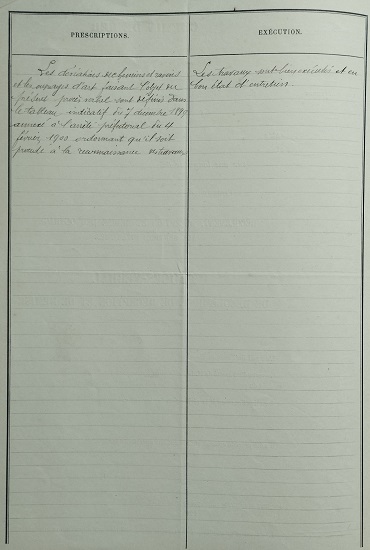 PRESCRIPTIONS.
EXÉCUTION.
Les déviations de chemins et ravins
et les ouvrages d'art faisant l'objet du
présent procès verbal sont définis dans
le tableau indicatif du 7 décembre 1899
annexé à l'arrêté préfectoral du 4
février 1900 ordonnant qu'il soit
procédé à la reconnaissance
Les travaux sont bien exécutés et en
bon état d'entretien